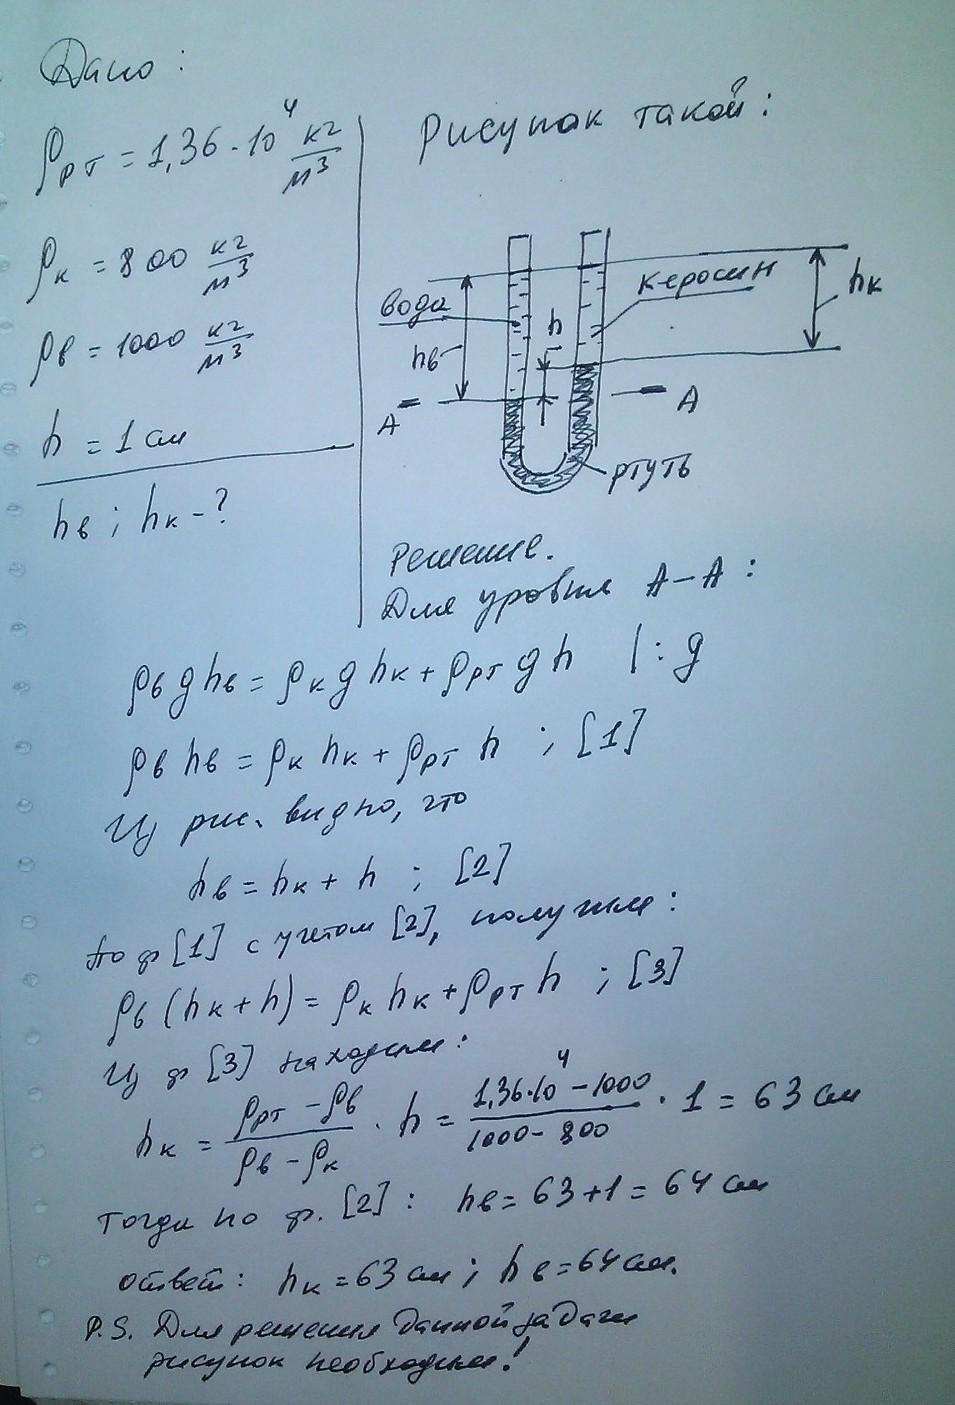 Дано:
ρрт = 1,36·10⁴ кг/м³
ρк = 800 кг/м³
ρв = 1000 кг/м³
h = 1 см
hв; hк - ?
Рисунок такой:
вода
керосин
h
hк
hв
A
A
ртуть
Решение.
Для уровня A-A:
ρв g hв = ρк g hк + ρрт g h | : g
ρв hв = ρк hк + ρрт h ; [1]
Из рис. видно, что
hв = hк + h ; [2]
По ф [1] с учетом [2], получим:
ρв (hк + h) = ρк hк + ρрт h ; [3]
Из ф [3] находим:
hк = (ρрт - ρв)/(ρв - ρк) · h = (1,36·10⁴ - 1000)/(1000 - 800) · 1 = 63 см
Тогда по ф. [2]: hв = 63 + 1 = 64 см
Ответ: hк = 63 см; hв = 64 см.
P.S. Для решения данной задачи
рисунок необходим!